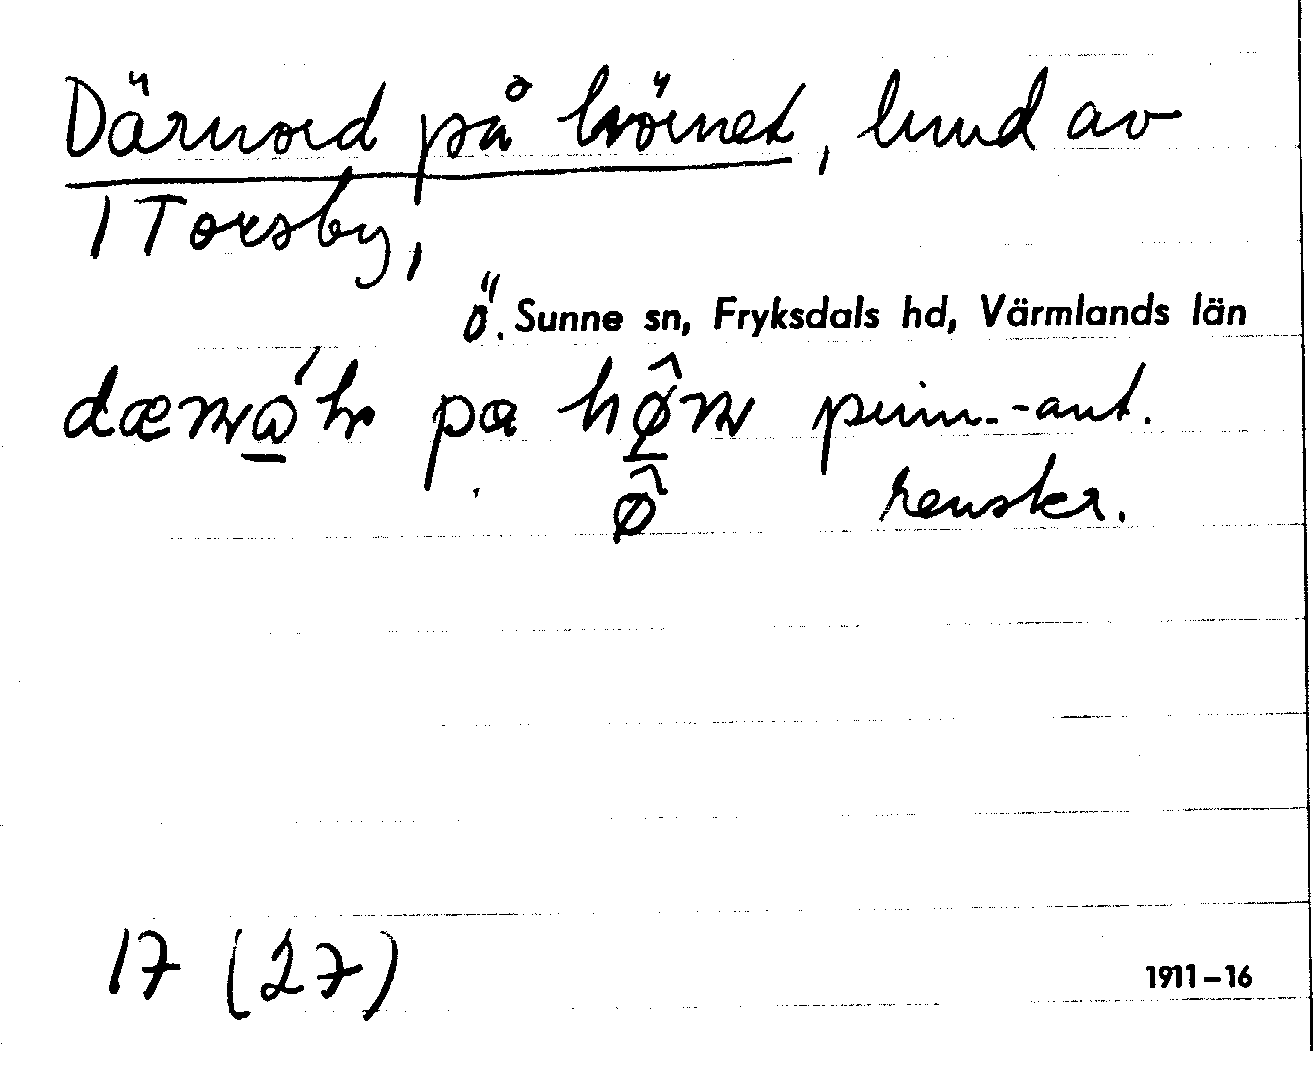 Därnord på hörnet, lund av
1 Torsby,
Ö. Sunne sn, Fryksdals hd, Värmlands län
på prim.-ant.
ø̂ renskr.
17 (27) 1911-16